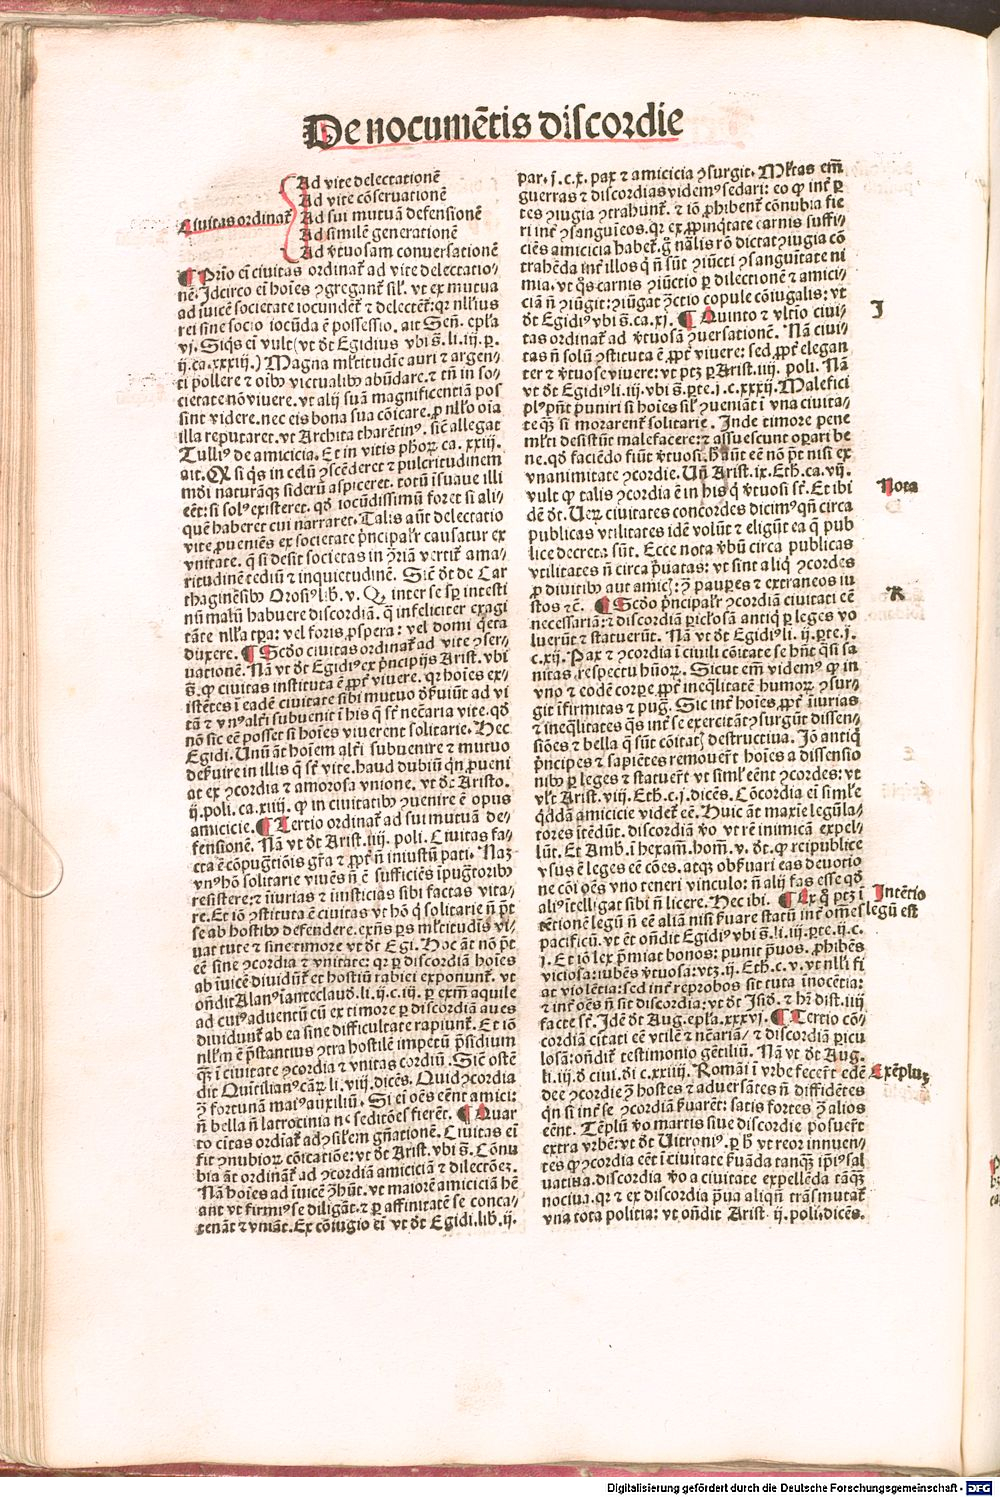 De nocumētis discordie
Ad vite delectationē
Ad vite cōseruationē
Ciuitas ordinat᷑ Ad sui mutuā defensionē
Ad similē generationē
Ad v̓tuosam conuersationē
¶ Prīo em̄ ciuitas ordinat᷑ ad vite delectatio⸗
nē. Idcirco em̄ hoīes ꝯgregant᷑ sil̓. vt ex mutua
ad iuicē societate iocundēt᷑ ⁊ delectēt᷑: qꝛ nulli⁹
rei sine socio iocūda ē possessio. ait Señ. ep̄la
vj. Siq̄s em̄ vult (vt dt̄ Egidius vbi s̄. li. iij. p.
ij. ca. xxxiij.) Magna ml̓titudīe auri ⁊ argen⸗
ti pollere ⁊ oībꝰ victualibꝰ abūdare. ⁊ tn̄ in so⸗
cietate nō viuere. vt alij suā magnificentiā pos
sint videre. nec eis bona sua cōicare. ꝓ nll̓o oīa
illa reputaret. vt Archita tharētin⁹. sic̄ allegat
Tulli⁹ de amicicia. Et in vitis ph̓oꝝ. ca. xxij.
ait. Q̄ si q̄s in celū ꝯscēderet ⁊ pulcritudinem
mūdi naturāqꝫ siderū aspiceret. totū isuaue illi
eēt: si sol⁹ existeret. qd̓ iocūdissimū foret si ali⸗
quē haberet cui narraret. Talis aūt delectatio
vite ꝓueniēs ex societate pͥncipalr̓ causatur ex
vnitate. q̄ si desit societas in ꝯriā vertit᷑ ama⸗
ritudinē tediū ⁊ inquietudinē. Sic̄ dt̄ de Car
thaginēsibꝰ Orosi⁹ lib. v. Q inter se sp̄ intesti
nū malū habuere discordiā. q̄ infeliciter exagi
tāte nll̓a tp̄a: vel foris ꝓspera: vel domi q̄eta
duxere. ¶ Sc̄do ciuitas ordinat᷑ ad vite ꝯser⸗
uationē. Nā vt dt̄ Egidi⁹ ex pͥncipijs Arist. vbi
s̄. ꝙ ciuitas instituta ē ꝓpt̓ viuere. qꝛ hoīes ex⸗
istētes ī eadē ciuitate sibi mutuo d̓seruiūt ad vi
tā ⁊ vn⁹ alt̓i subuenit ī his q̄ st̄ nec̄aria vite. qd̓
nō sic eē posset si hoīes viuerent solitarie. Hec
Egidi. Unū aūt hoīem alt̓i subuenire ⁊ mutuo
deseruire in illis q̄ st̄ vite. haud dubiū q̄n ꝓueni
at ex ꝯcordia ⁊ amorosa vnione. vt dt̄ Aristo.
ij. poli. ca. xiij. ꝙ in ciuitatibꝰ ꝯuenire ē opus
amicicie. ¶ Tertio ordinat᷑ ad sui mutuā de⸗
fensionē. Nā vt dt̄ Arist. iiij. poli. Ciuitas fa⸗
cta ē cōpugtiōis gr̄a ⁊ ꝓpt̓ nō iniustū pati. Naꝫ
vn⁹ hō solitarie viuēs nō ē sufficiēs īpugtoribꝰ
resistere: ⁊ īiurias ⁊ iniusticias sibi factas vita⸗
re. Et iō ꝯstituta ē ciuitas vt hō q̄ solitarie nō pōt
se ab hostibꝰ defendere. exn̄s ꝑs ml̓titudīs vi⸗
uat tute ⁊ sine timore vt dt̄ Egi. Hoc āt nō pōt
eē sine ꝯcordia ⁊ vnitate: qꝛ ꝑ discordiā hoīes
ab īuicē diuidūt᷑ et hostiū rabiei exponunt᷑. vt
on̄dit Alan⁹ ī anteclaud̓. li. ij. c. iij. ꝑ exm̄ aquile
ad cui⁹ aduentū cū ex timore ꝑ discordiā aues
diuidunt᷑ ab ea sine difficultate rapiunt᷑. Et iō
nll̓m ē p̄stantius ꝯtra hostilē impetū p̄sidium
q̄ꝫ ī ciuitate ꝯcordia ⁊ vnitas cordiū. Sic̄ ostē
dit Quītilian⁹ cāꝝ. li. viij. dicēs. Quid ꝯcordia
ꝯͣ fortunā mai⁹ auxiliū. Si em̄ oēs eēnt amici:
nō bella nō latrocinia nec seditōes fierēt. ¶ Quar
to ciuitas ordiat᷑ ad ꝯsil̓em gn̄ationē. Ciuitas em̄
fit ꝯnubioꝝ cōicatiōe: vt dt̄ Arist. vbi s̄. Cōnu
bia āt ordināt᷑ ad ꝯcordiā amiciciā ⁊ dilectōeꝫ.
Nā hoīes ad īuicē ꝯhūt᷑. vt maiorē amiciciā hē
ant vt firmi⁹ se diligāt. ⁊ ꝑ affinitatē se conca⸗
tenāt ⁊ vniāt. Ex cōiugio em̄ vt dt̄ Egidi. lib. ij.
par. j. c. x. pax ⁊ amicicia ꝯsurgit. Ml̓tas em̄
guerras ⁊ discordias videm⁹ sedari: eo ꝙ int̓ ꝑ
tes ꝯiugia ꝯtrahūt᷑. ⁊ iō ꝓhibent᷑ cōnubia fie
ri int̓ ꝯsanguīeos. qꝛ ex ꝓpinq̄tate carnis suffi⸗
ciēs amicicia habet᷑. g̊ nālis rō dictat ꝯiugia cō
trahēda int̓ illos q̄ nō sūt ꝯiūcti ꝯsanguītate ni
mia. vt q̄s carnis ꝯiūctio ꝑ dilectionē ⁊ amici⸗
ciā nō ꝯiūgit: ꝯiūgat ꝯctio copule cōiugalis: vt
dt̄ Egidi⁹ vbi s̄. ca. xj. ¶ Quinto ⁊ vltīo ciui⸗
tas ordinat᷑ ad v̓tuosā ꝯuersationē. Nā ciui⸗
tas nō solū ꝯstituta ē ꝓpt̓ viuere: sed ꝓpt̓ elegan
ter ⁊ v̓tuose viuere: vt ptꝫ ꝑ Arist. iiij. poli. Nā
vt dt̄ Egidi⁹ li. iij. vbi s̄. ꝑte. j. c. xxxij. Malefici
pl⁹ pn̄t puniri si hoīes sil̓ ꝯueniāt ī vna ciuita⸗
te q̄ꝫ si morarent᷑ solitarie. Inde timore pene
ml̓ti desistūt malefacere: ⁊ assuescunt oꝑari be
ne. qd̓ faciēdo fiūt v̓tuosi. h̓ aūt eē nō pōt nisi ex
vnanimitate ꝯcordie. Un̄ Arist. ix. Eth. ca. vij.
vult ꝙ talis ꝯcordia ē in his q̄ v̓tuosi st̄. Et ibi
dē dt̄. Ueꝝ ciuitates concordes dicim⁹ qn̄ circa
publicas vtilitates idē volūt ⁊ eligūt ea q̄ pub
lice decreta sūt. Ecce nota v̓bū circa publicas
vtilitates nō circa p̄uatas: vt sint aliq̄ ꝯcordes
ꝓ diuitibꝰ aut amicꝭ: ꝯͣ pauꝑes ⁊ extraneos iu
stos ⁊c̄. ¶ Sc̄do pͥncipalr̓ ꝯcordiā ciuitati eē
necessariā: ⁊ discordiā pic̓losā antiq̄ ꝑ leges vo
luerūt ⁊ statuerūt. Nā vt dt̄ Egidi⁹ li. ij. ꝑte. j.
c. xij. Pax ⁊ ꝯcordia ī ciuili cōitate se hn̄t q̄si sa
nitas respectu hūoꝝ. Sicut em̄ videm⁹ ꝙ in
vno ⁊ eodē corꝑe ꝓpt̓ ineq̄litatē humoꝝ ꝯsur⸗
git ifirmitas ⁊ pug̊. Sic int̓ hoīes ꝓpt̓ īiurias
⁊ ineq̄litates q̄s int̓ se exercitāt ꝯsurgūt dissen⸗
siōes ⁊ bella q̄ sūt cōitatꝭ destructiua. Iō antiq̄
pͥncipes ⁊ sapiētes remouerūt hoīes a dissensio
nibꝰ ꝑ leges ⁊ statuerūt vt siml̓ eēnt ꝯcordes: vt
vlt̓ Arist. viij. Eth. c. j. dicēs. Cōcordia em̄ simile
q̄ddā amicicie videt᷑ eē. Huic āt maxīe legūla⸗
tores itēdūt. discordiā v̓o vt rē inimicā expel⸗
lūt. Et Amb. ī hexam̄. hom̄. v. dt̄. ꝙ reipublice
vsus ē leges eē cōes. atqꝫ obseruari eas deuotio
ne cōi oēs vno teneri vinculo: nō alij fas esse qd̓
ali⁹ ītelligat sibi nō licere. Hec ibi. ¶ Ex q̊ ptꝫ ꝙ ī
tētionē legū nō eē aliā nisi seruare statū int̓ oēs
pacificū. vt ēt on̄dit Egidi⁹ vbi s̄. li. iij. ꝑte. ij. c.
j. Et iō lex p̄miat bonos: punit p̄uos. ꝓhibēs
viciosa: iubēs v̓tuosa: vtꝫ. ij. Eth. c. v. vt nll̓i fi
at violētia: sed int̓ reprobos sit tuta īnocētia:
⁊ int̓ oēs nō sit discordia: vt dt̄ Isid̓. ⁊ hr̄ dist. iiij
facte st̄. Idē dt̄ Aug. ep̄la. xxxvj. ¶ Tertio cō⸗
cordiā ciuitati eē vtilē ⁊ nec̄ariā/ ⁊ discordiā ꝑicu
losā: on̄dit᷑ testimonio gētiliū. Nā vt dt̄ Aug.
li. iij. d̓ ciui. di c. xxiiij. Romāi ī vrbe fecerūt edē
dee ꝯcordie ꝯͣ hostes ⁊ aduersātes nō diffidētes
qn̄ si int̓ se ꝯcordiā seruarēt: satis fortes ꝯͣ alios
eēnt. Tēplū v̓o martis siue discordie posuerūt
extra vrbē: vt dt̄ Uitroni⁹. ꝑ h̓ vt reor innuen⸗
tes ꝙ ꝯcordia eēt ī ciuitate seruāda tanq̄ꝫ ip̄i⁹ sal
uatiua. discordia v̓o a ciuitate expellēda tāq̄ꝫ
nociua. qꝛ ⁊ ex discordia p̄ua aliqn̄ trāsmutat᷑
vna tota politia: vt on̄dit Arist. ij. poli. dicēs.
I
Nota
K
Intētio
legū est
Exēpluꝫ
Digitalisierung gefördert durch die Deutsche Forschungsgemeinschaft - DFG